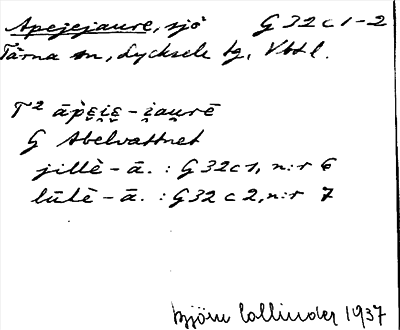 Apejejaure, sjö G 32 c 1-2
Tärna sn, Lycksele lg, Vbtl.
T² āpε̯i̯ε̯-i̯au̯rē
G Abelvattnet
jillè-ā. : G 32 c 1, n:r 6
lūlè-ā. : G 32 c 2, n:r 7
Björn Collinder 1937